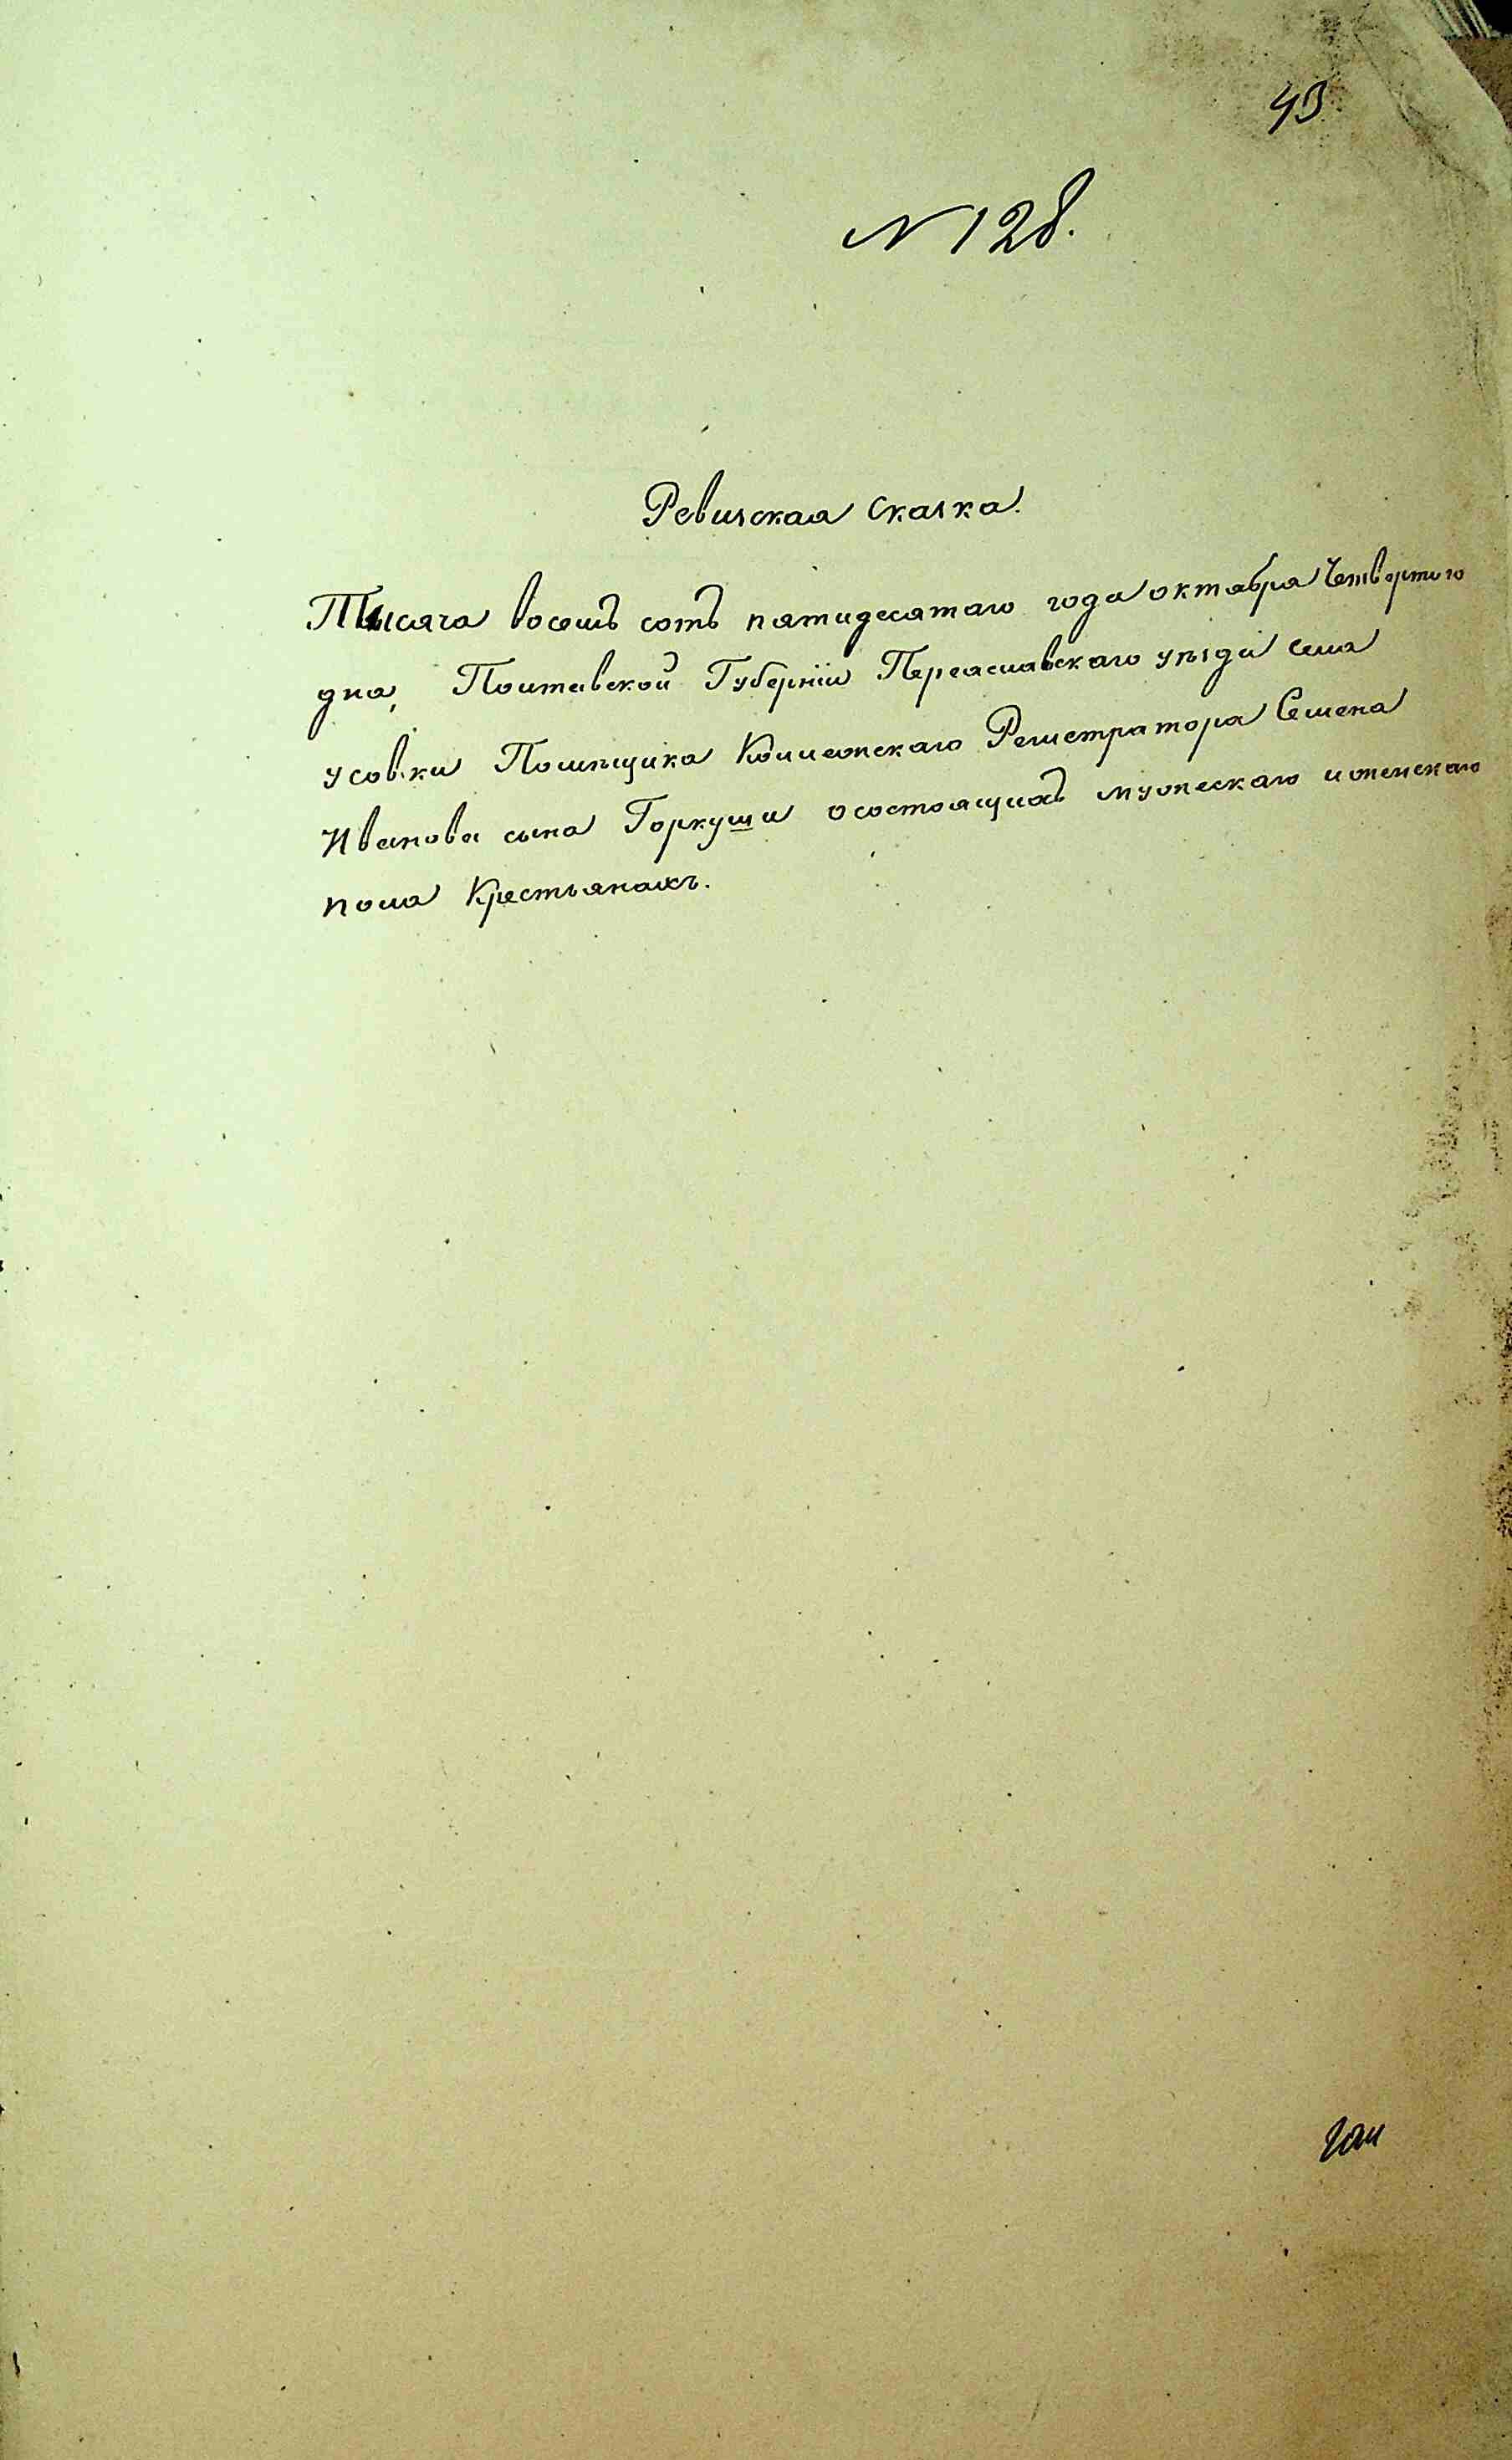 43.
№ 128.
Ревизская Сказка.
Тысяча восемь сотъ пятидесятаго года октября Четвертого
дня, Полтавской Губерніи Переяславскаго уѣзда села
усовки Помѣщика Коллежскаго Регистратора Семена
Иванова сына Горкуши осостоящихъ мужескаго иженскаго
пола Крестьянахъ.